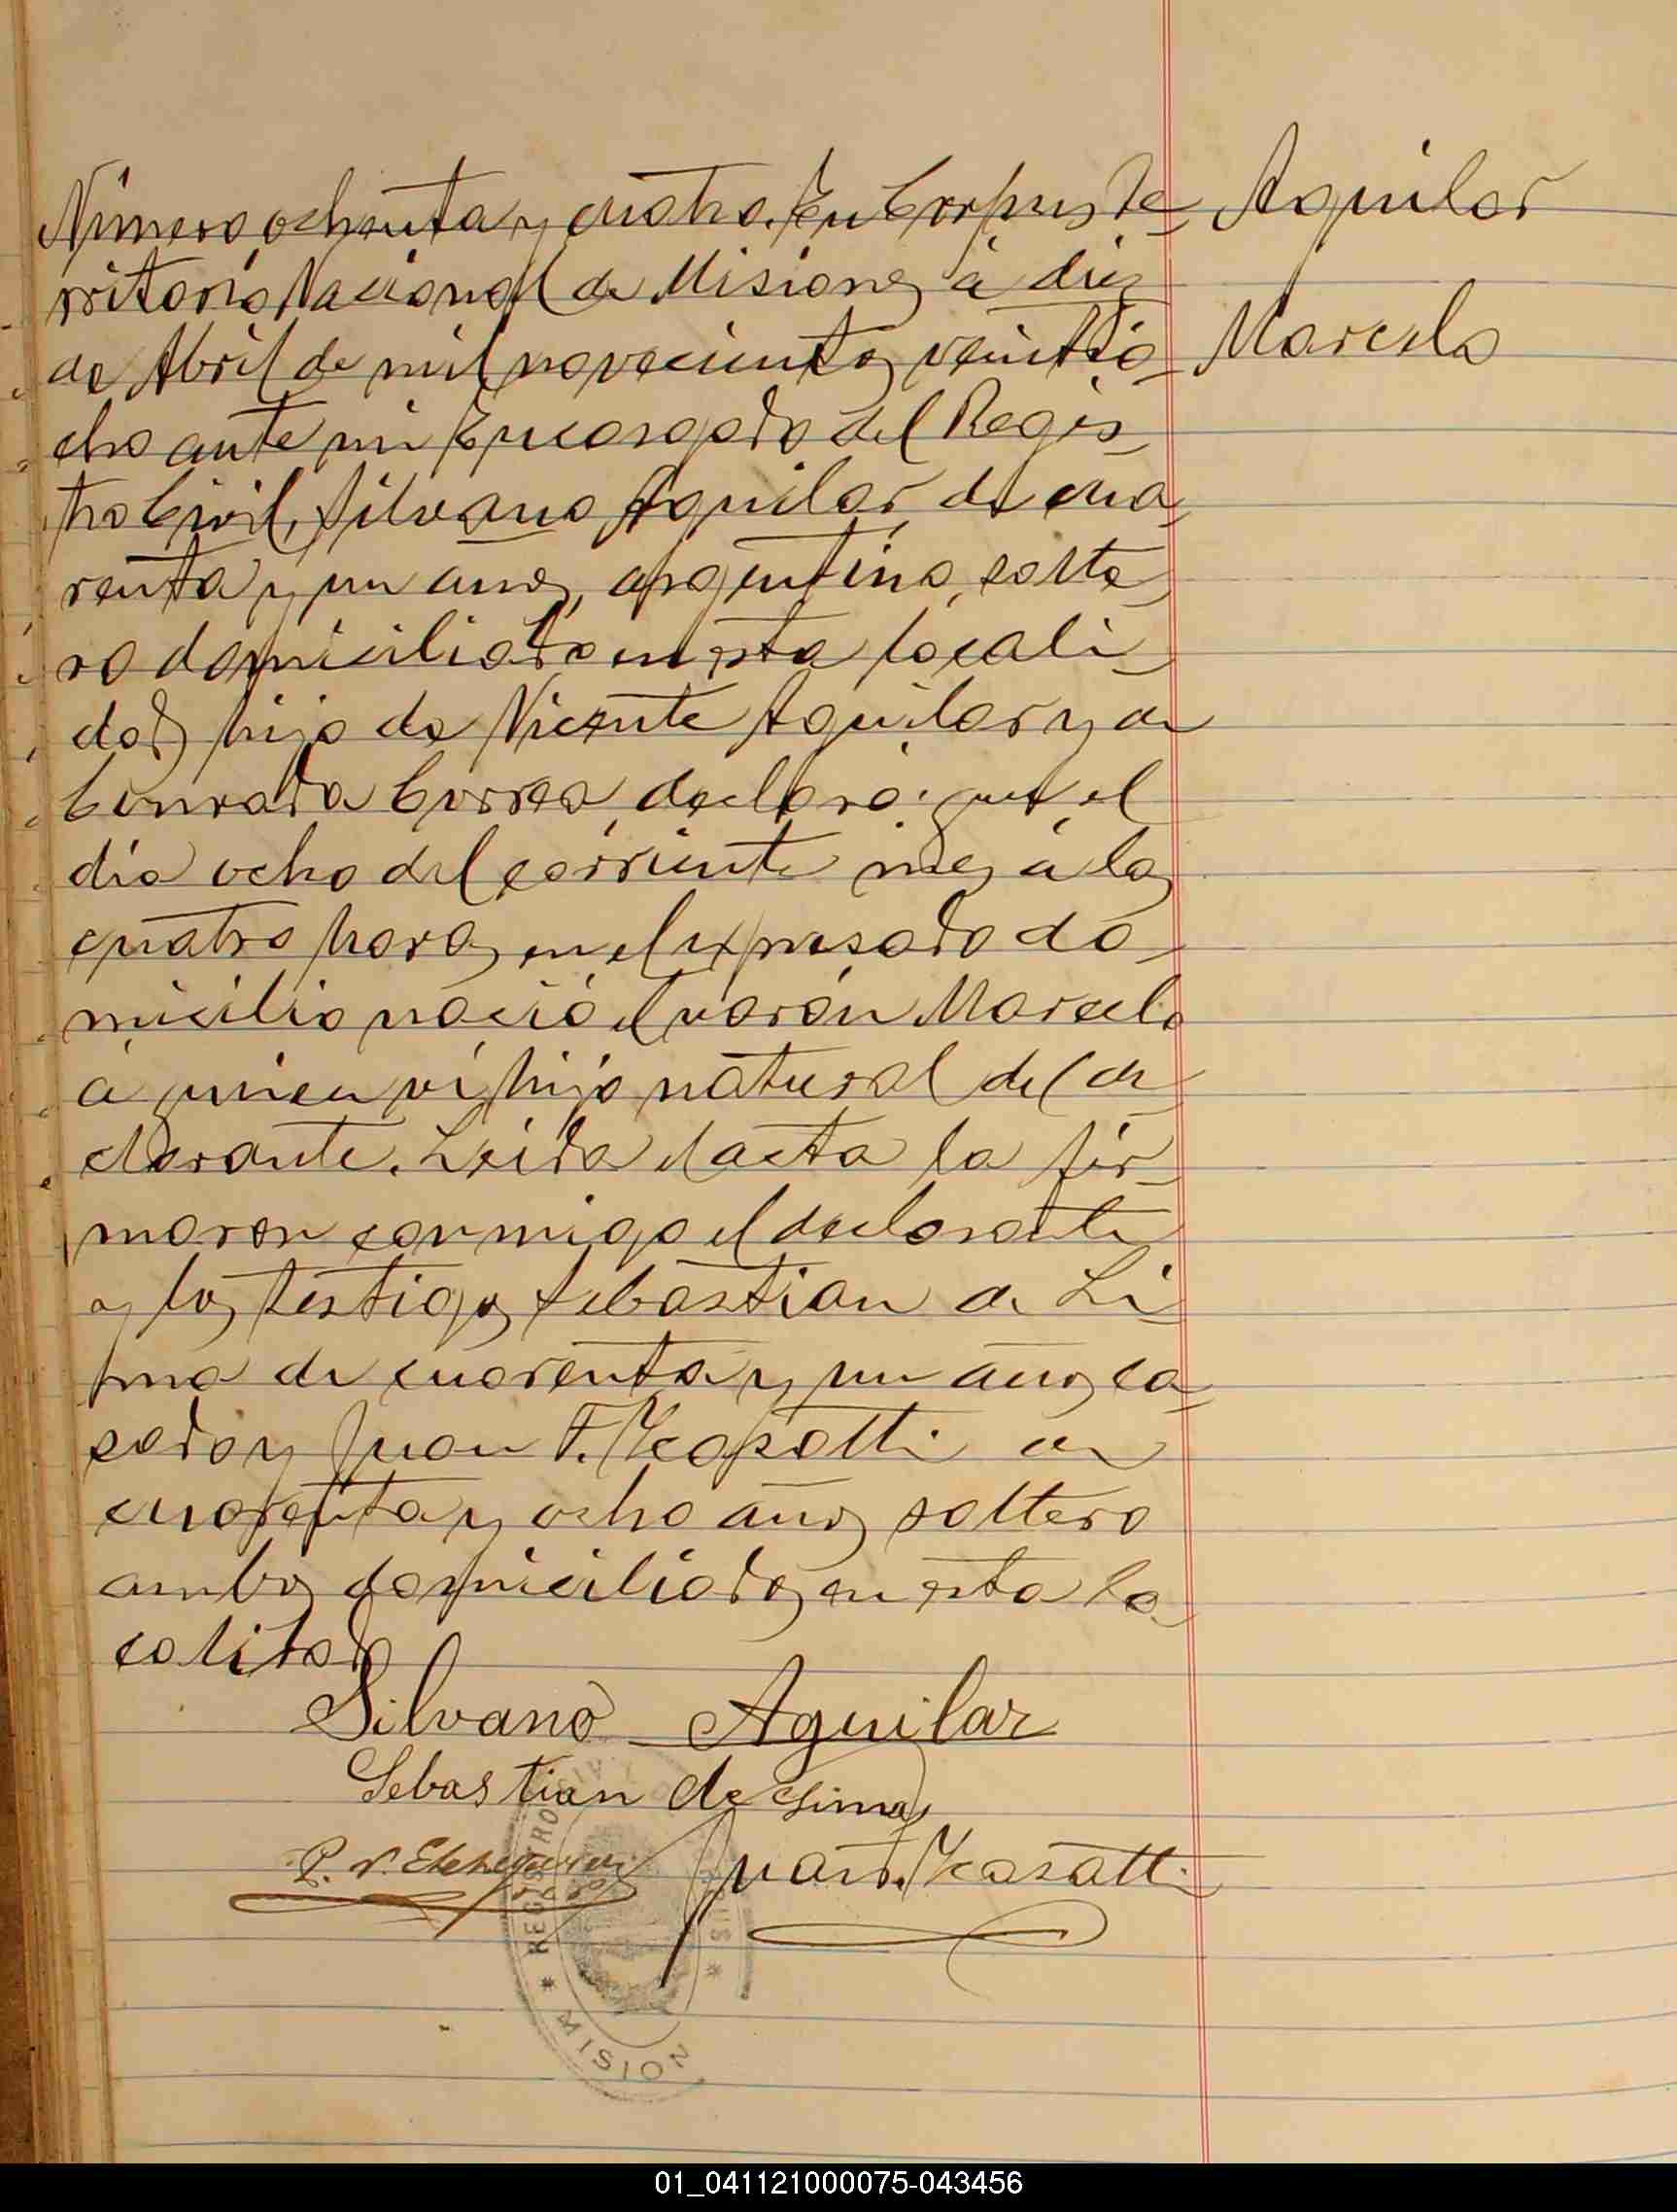 Número ochenta y cuatro. En Corpus Te-
rritorio Nacional de Misiones á diez
de Abril de mil novecientos veintio-
cho ante mi Encargado del Regis-
tro Civil, Silvano Aguilar, de cua-
renta y un años, argentino, solte-
ro domiciliado en esta locali-
dad hijo de Vicente Aguilar y de
Conrada Correa, declaró: que el
día ocho del corriente mes á las
cuatro horas en el expresado do-
micilio nació el varón Marcelo
a quien ví hijo natural del de-
clarante. Leida el acta la fir-
maron conmigo el declarante
y los testigos Sebastian de Li-
ma de cuarenta y un años ca-
sado y Juan F.
cuarenta y ocho años soltero
ambos domiciliados en esta lo-
calidad
Silvano Aguilar
Sebastian de Lima
Juan F.
Aguilar
Marcelo
REGISTRO CIVIL
* MISION
01_041121000075-043456